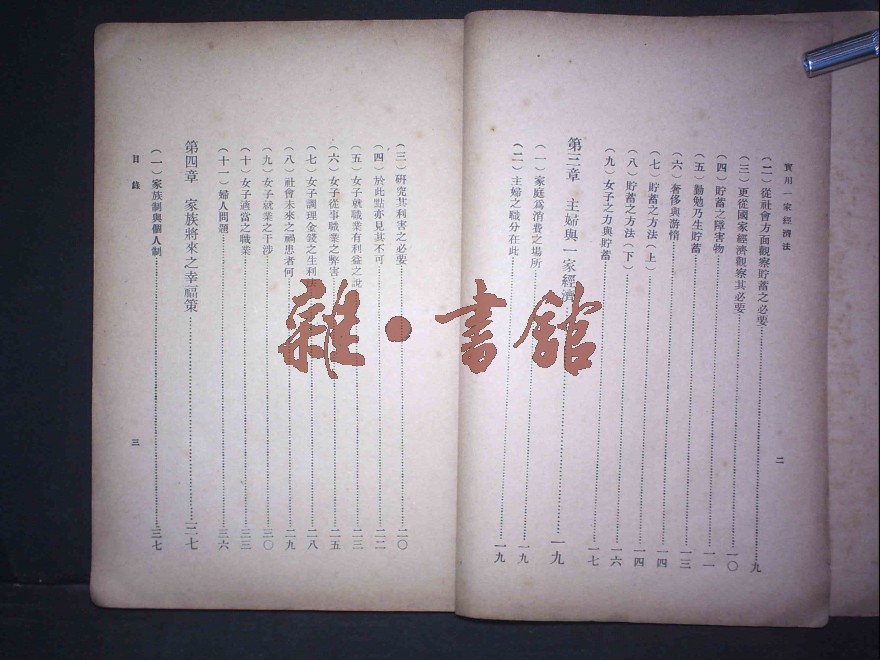 實用一家經濟法
(二)從社會方面觀察貯蓄之必要……九
(三)更從國家經濟觀察其必要……一〇
(四)貯蓄之障害物……一一
(五)勤勉乃生貯蓄……一三
(六)奢侈與游惰……一四
(七)貯蓄之方法(上)……一四
(八)貯蓄之方法(下)……一六
(九)女子之力與貯蓄……一七
第三章 主婦與一家經濟……一九
(一)家庭爲消費之場所……一九
(二)主婦之職分在此……一九
二
(三)研究其利害之必要……二〇
(四)於此點亦見其不可……二二
(五)女子就職業有利益之說……二三
(六)女子從事職業之弊害……二五
(七)女子調理金錢之生利法……二八
(八)社會未來之禍患者何……二九
(九)女子就業之干涉……三〇
(十)女子適當之職業……三三
(十一)婦人問題……三六
第四章 家族將來之幸福策……三七
(一)家族制與個人制……三七
目錄
三
雜·書館